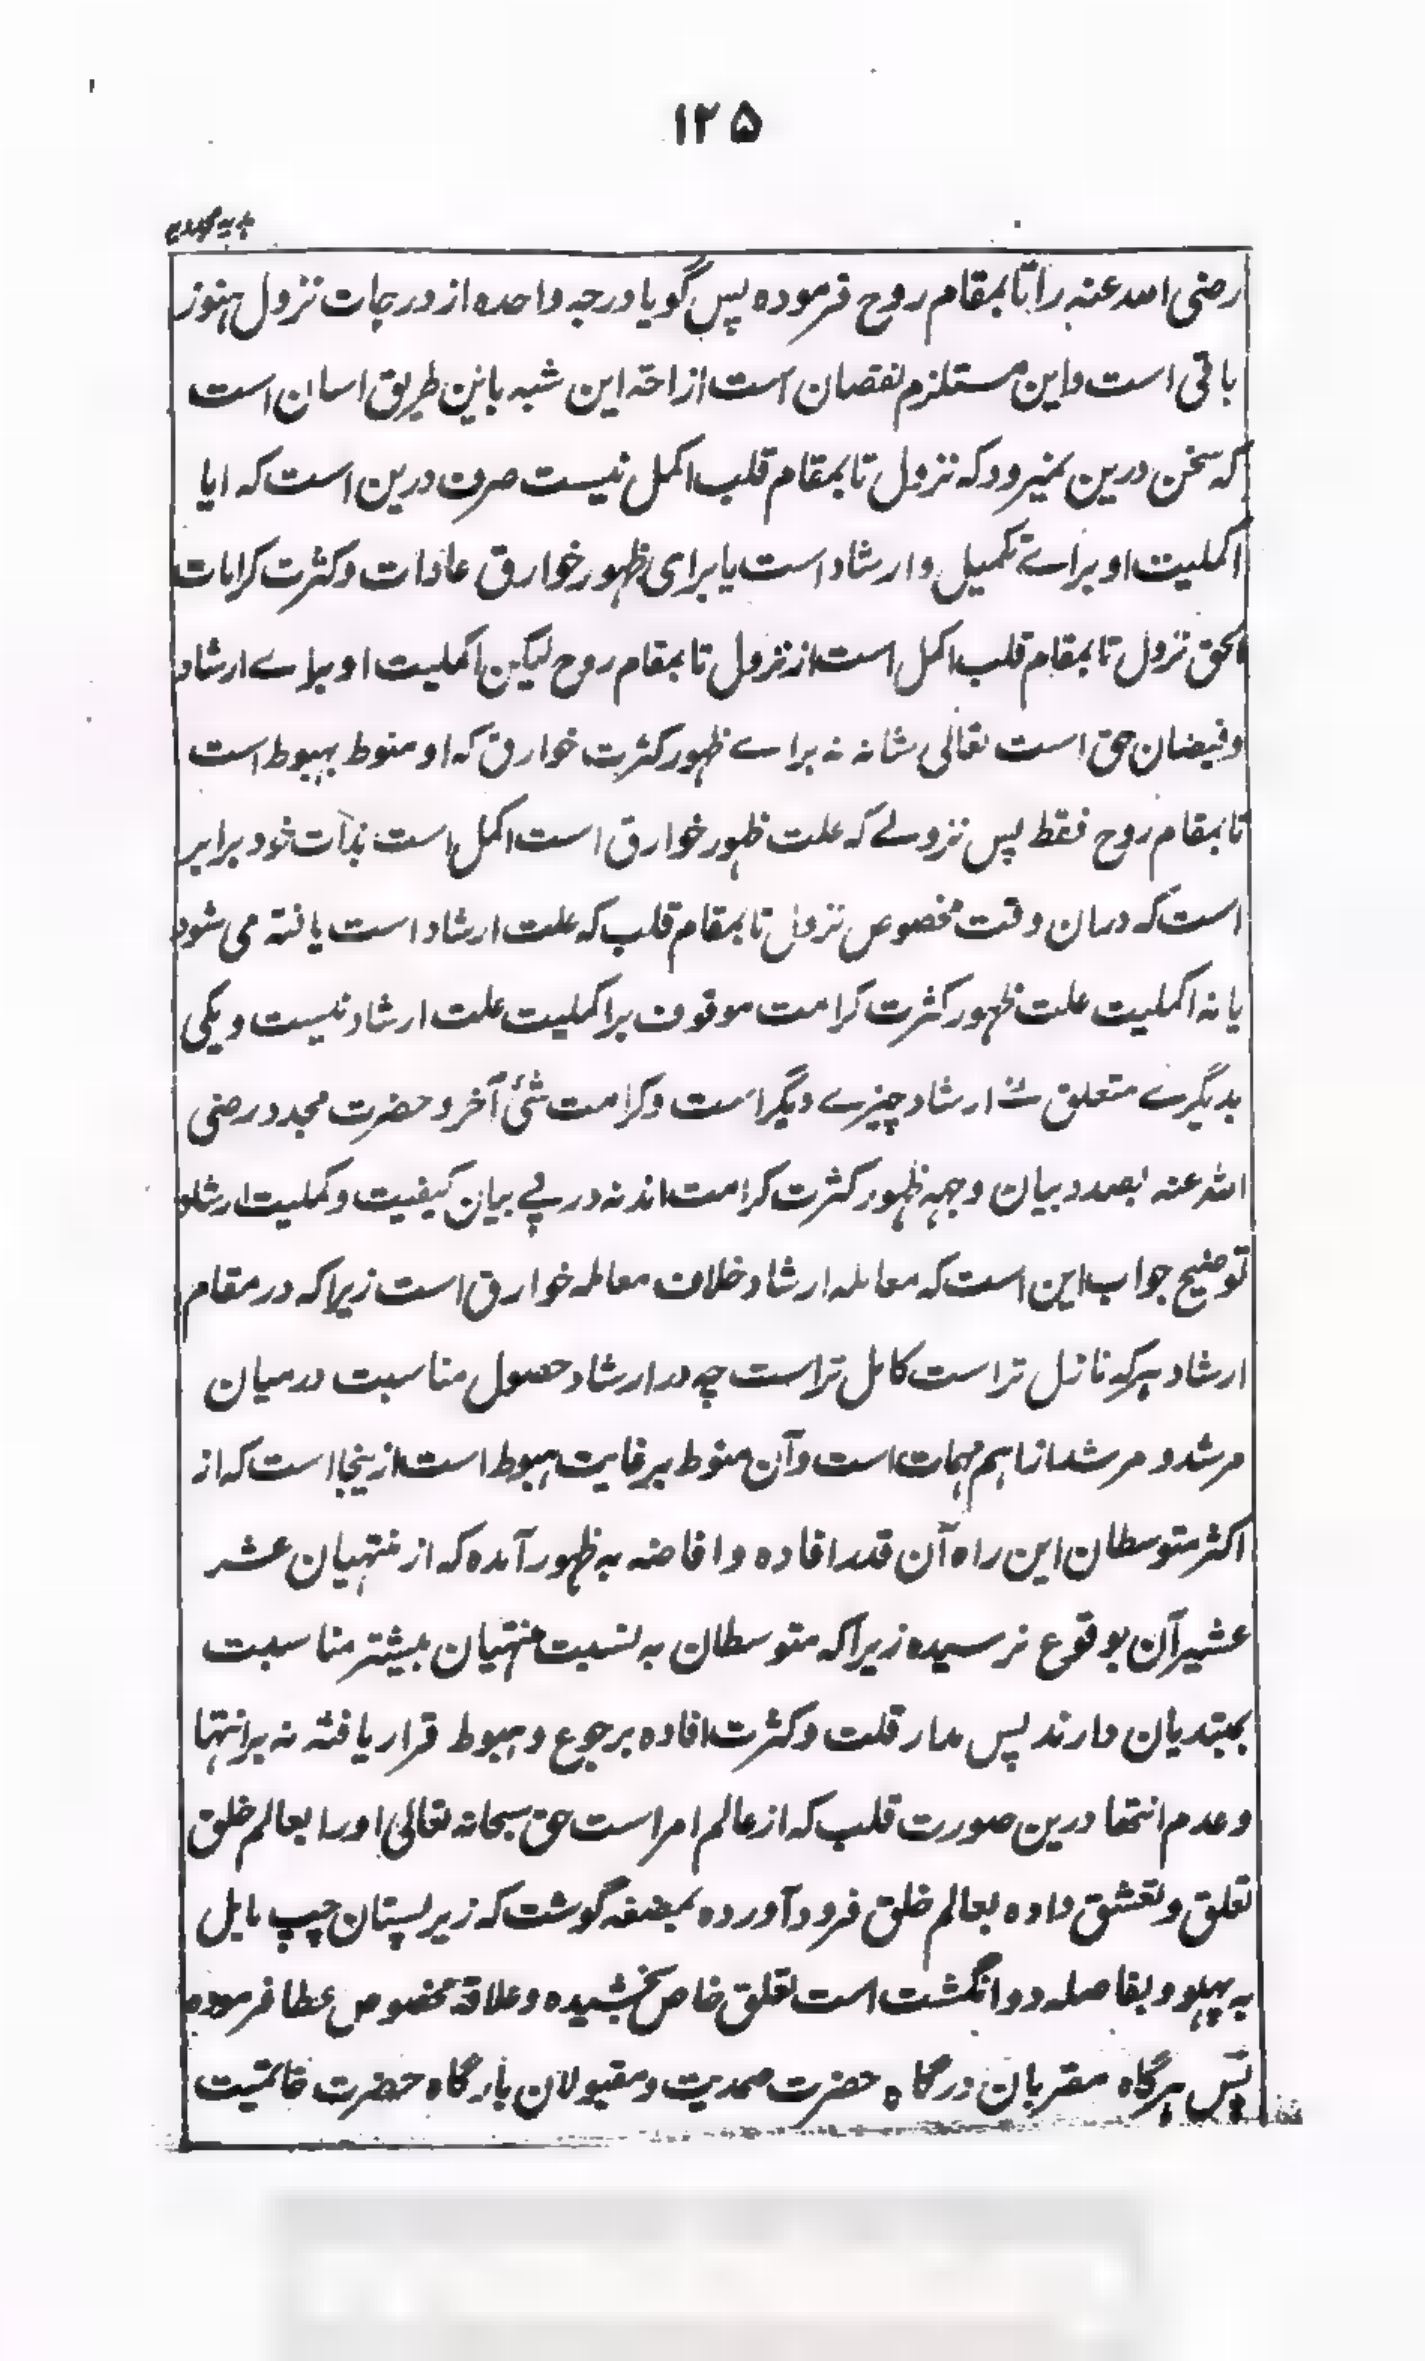 ۱۲۵
ہدیہ مجددیہ
رضی اللہ عنہ را تا بمقام روح فرموده پس گویا درجہ واحده از درجات نزول ہنوز
باقی است و این مستلزم نقصان است ازاحتہ این شبہ باین طریق اسان است
کہ سخن درین نمیرود کہ نزول تا بمقام قلب اکمل نیست صرف درین است کہ ایا
اکملیت او براے تکمیل و ارشاد است یا برای ظہور خوارق عادات و کثرت کرامات
الحق نزول تا بمقام قلب اکمل است از نزول تا بمقام روح لیکن اکملیت او براے ارشاد
و فیضان حق است تعالی شانہ نہ براے ظہور کثرت خوارق کہ او منوط بہبوط است
تا بمقام روح فقط پس نزولے کہ علت ظہور خوارق است اکمل است بذات خود برابر
است کہ دران وقت مخصوص نزول تا بمقام قلب کہ علت ارشاد است یافتہ می شود
یا نہ اکملیت علت ظہور کثرت کرامت موقوف بر اکملیت علت ارشاد نیست و یکی
بدیگرے متعلق نے ارشاد چیزے دیگر است و کرامت شئ آخر و حضرت مجدد رضی
اللہ عنہ بصدد بیان وجہہ ظہور کثرت کرامت اند نہ در پے بیان کیفیت و کملیت ارشاد
توضیح جواب این است کہ معاملہ ارشاد خلاف معاملہ خوارق است زیراکہ در مقام
ارشاد ہرکہ نازل تر است کامل تر است چہ در ارشاد حصول مناسبت درمیان
مرشد و مرشد از اہم مہمات است و آن منوط بر غایت ہبوط است ازینجا است کہ از
اکثر متوسطان این راه آن قدر افاده و افاضہ بہ ظہور آمده کہ از منتہیان عشر
عشیر آن بوقوع نرسیده زیراکہ متوسطان بہ نسبت منتہیان بیشتر مناسبت
بمبتدیان دارند پس مدار قلت و کثرت افاده برجوع و ہبوط قرار یافتہ نہ بر انتہا
و عدم انتہا درین صورت قلب کہ از عالم امر است حق سبحانہ تعالیٰ او را بعالم خلق
تعلق و تعشق داده بعالم خلق فرود آورده بمضغہ گوشت کہ زیر پستان چپ مایل
بہ پہلو و بفاصلہ دو انگشت است تعلق خاص بخشیده و علاقہ مخصوص عطا فرموده
پس ہرگاه مقربان درگاه حضرت صمدیت و مقبولان بارگاه حضرت خاتمیت